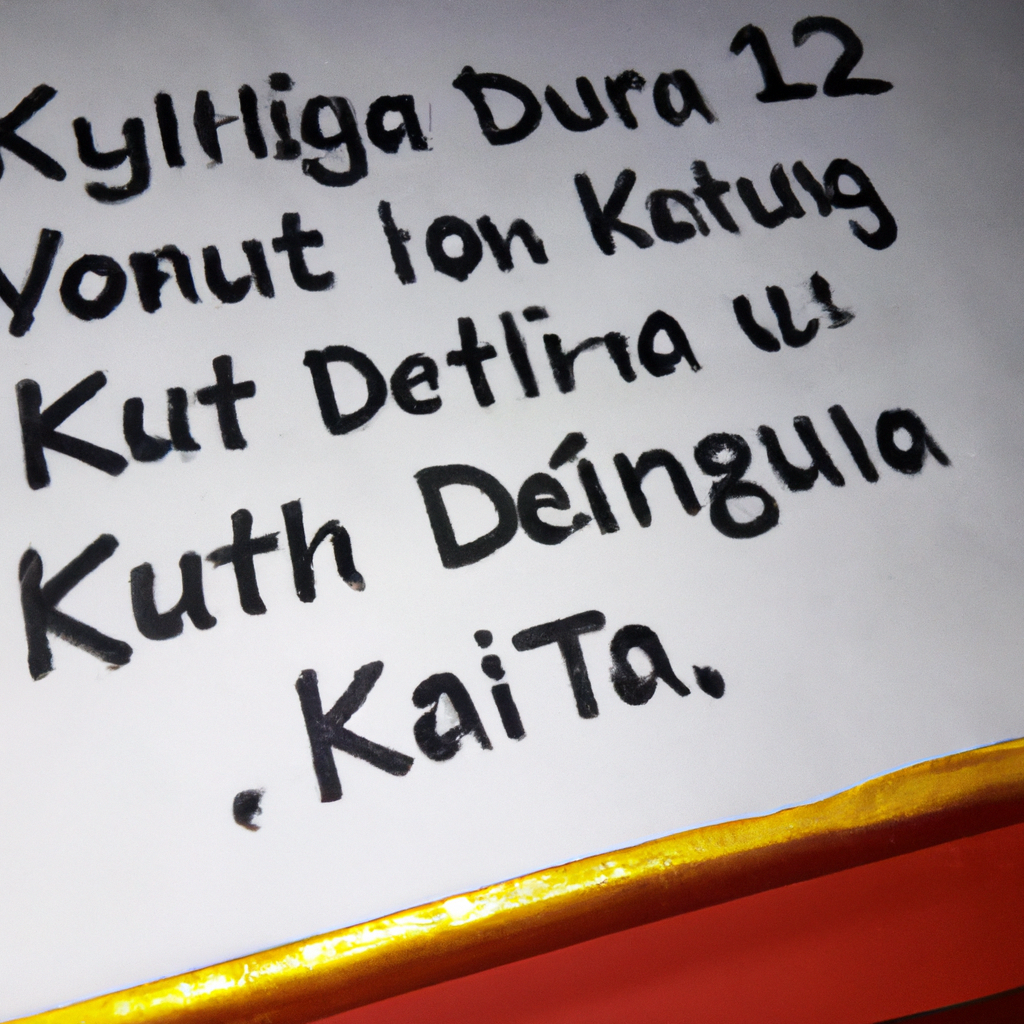 Kylthiga Dura 12
Yonut ton Katung
Kut Detlina
Kuth Déingula
. KaiTa.